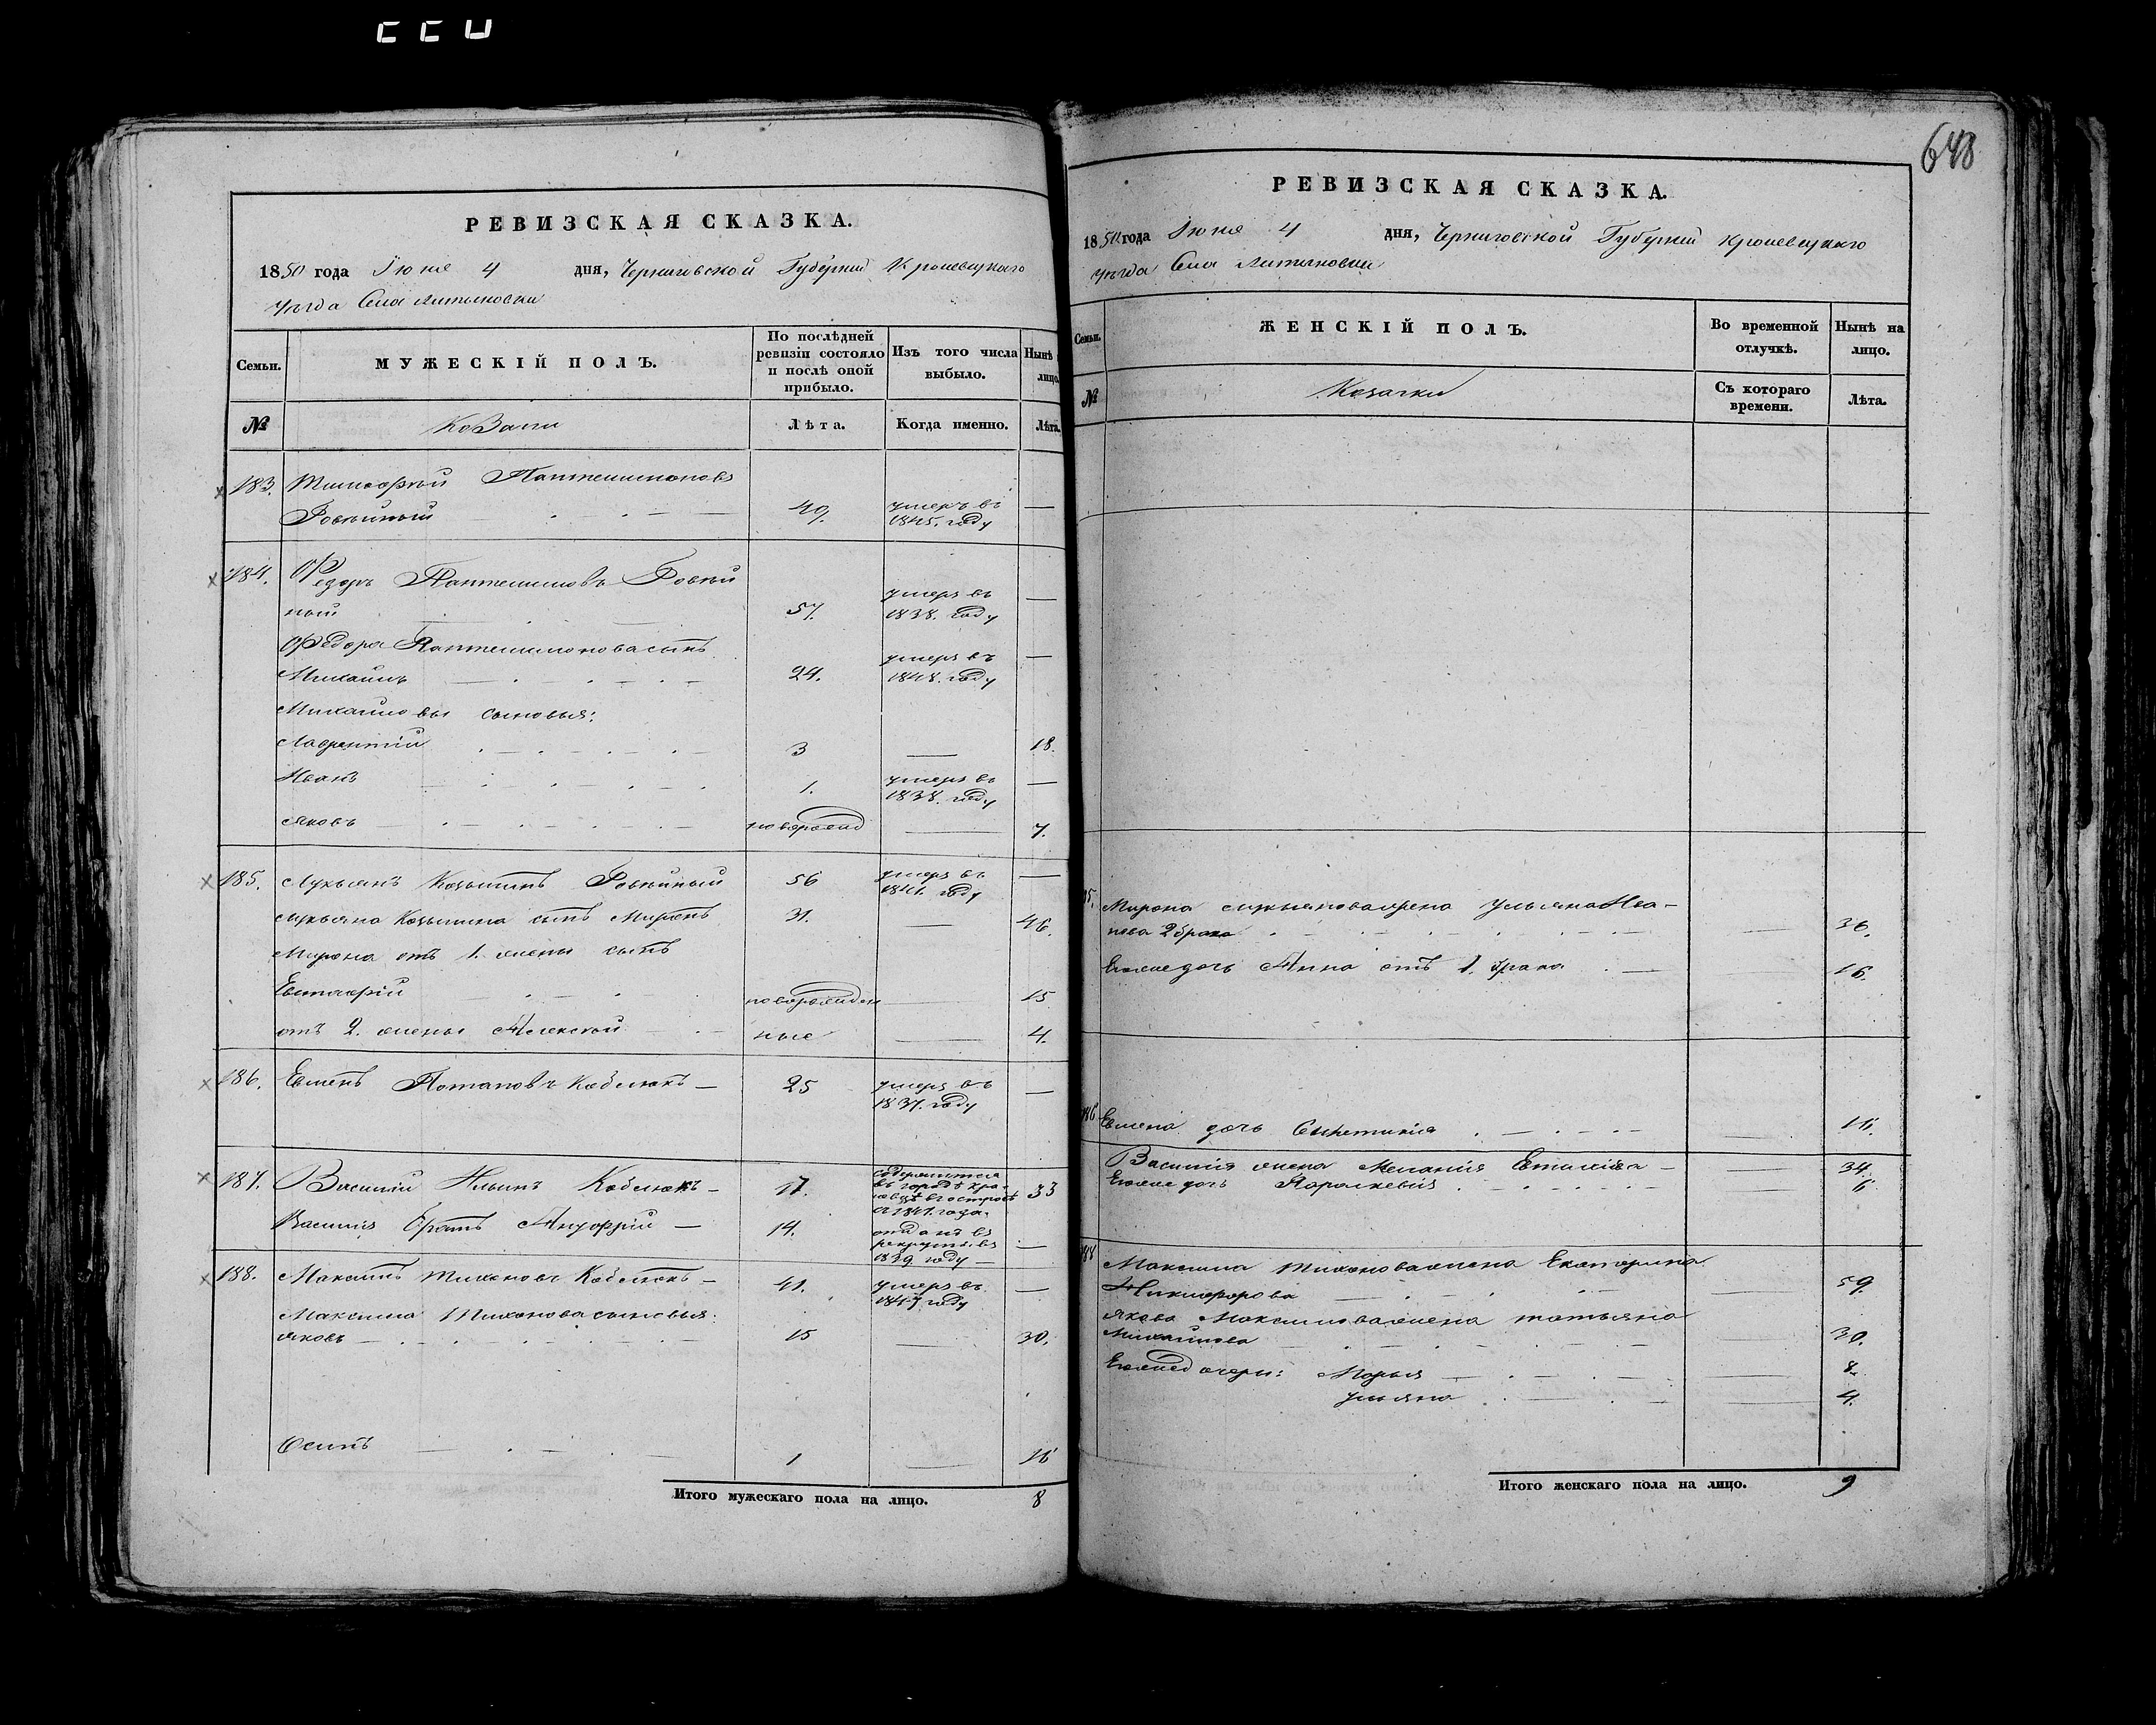 648
РЕВИЗСКАЯ СКАЗКА.
1850 года Июня 4 дня, Черниговской Губернии Кролевецкаго
уѣзда Села Литвиновки
Семьи.
МУЖЕСКІЙ ПОЛЪ.
По послѣдней ревизіи состояло и послѣ оной прибыло.
Изъ того числа выбыло.
Нынѣ лицо.
№
Козаки
Лѣта.
Когда именно.
Лѣта.
183. Тимофей Пантелимоновъ
Ровнѣйный 49. умеръ въ 1845. году —
184. Федоръ Пантелимовъ Ровнѣй
ный 57. умеръ въ 1838. году —
Федора Пантелимонова сынъ
Михаилъ 24. умеръ въ 1848. году —
Михаиловы сыновья:
Лаврентій 3 — 18.
Иванъ 1. умеръ въ 1838. году —
Яковъ новорожд — 7.
185. Лукьянъ Козьминъ 56 умеръ въ 1841. году —
Лукьяна Козьмина сынъ Миронъ 31. — 46.
Мирона отъ 1. жены сынъ
Евстафій новорожден — 15
отъ 2. жены Алексѣй ные — 4.
186. Евменъ Потаповъ Кобелюкъ — 25 умеръ въ 1837. году —
187. Василій Ильинъ Кобелюкъ — 17. содержится въ городѣ Кролевцѣ въ острогѣ съ 1841. года. 33
Василія братъ Андрей — 14. отданъ въ рекруты въ 1839 году —
188. Максимъ Тихоновъ Кобелюкъ — 41. умеръ въ 1847 году —
Максима Тихонова сыновья:
Яковъ 15 — 30.
Осипъ 1 — 16
Итого мужескаго пола на лицо. 8
РЕВИЗСКАЯ СКАЗКА.
1850 года Июня 4 дня, Черниговской Губерніи Кролевецкаго
уѣзда Села Литвиновки
Семьи.
ЖЕНСКІЙ ПОЛЪ.
Во временной отлучкѣ.
Нынѣ на лицо.
№
Козачки
Съ котораго времени.
Лѣта.
Мирона Лукьянова жена Ульяна Ива-
нова 2 брака 36.
Ея же дочь Анна отъ 1. брака 16.
186 Евмена дочь Синклитикія
Василія жена Меланія Евтихіева — 34.
Ея же дочь Параскевія 6
188 Максима Тихонова жена Екатерина
Никифорова 59.
Якова Максимова жена Татьяна
Михайлова 30.
Ея же дочери: Марья 8.
Ульяна 4.
Итого женскаго пола на лицо. 9